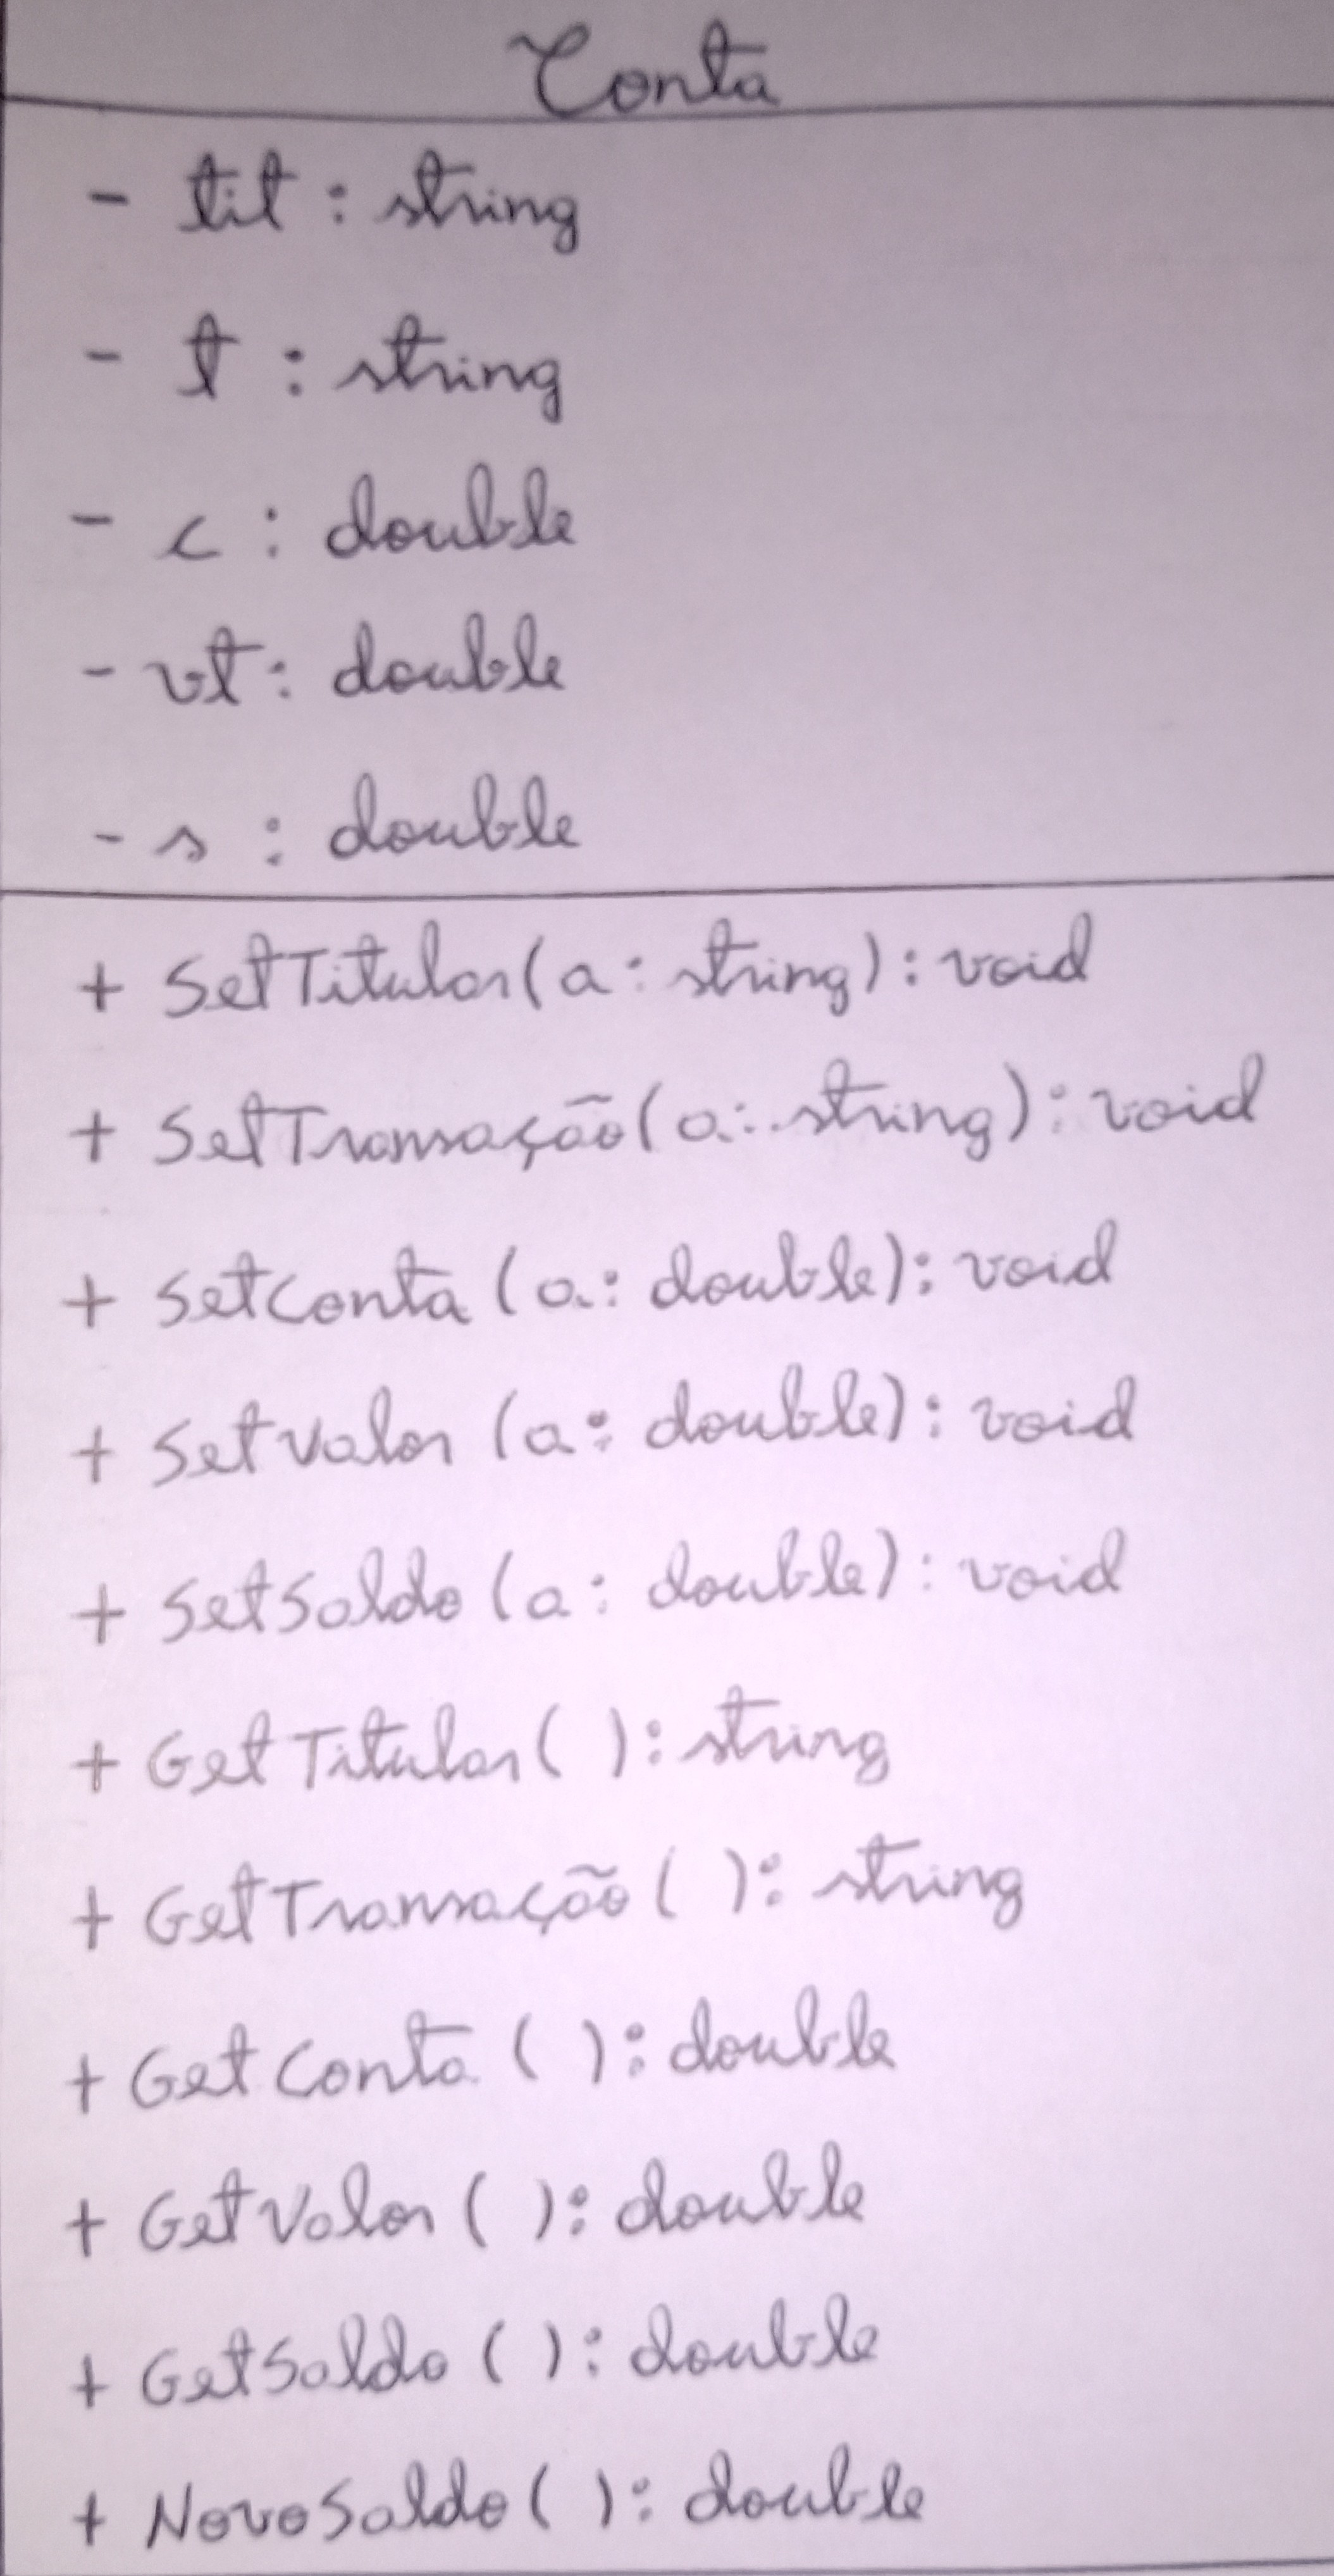 Conta
- tit : string
- t : string
- c : double
- vt : double
- s : double
+ SetTitular(a : string) : void
+ SetTransação(a : string) : void
+ SetConta (a : double) : void
+ SetValor (a : double) : void
+ SetSaldo (a : double) : void
+ GetTitular( ) : string
+ GetTransação ( ) : string
+ GetConta ( ) : double
+ GetValor ( ) : double
+ GetSaldo ( ) : double
+ NovoSaldo ( ) : double